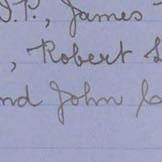 J.P., James
, Robert
and John